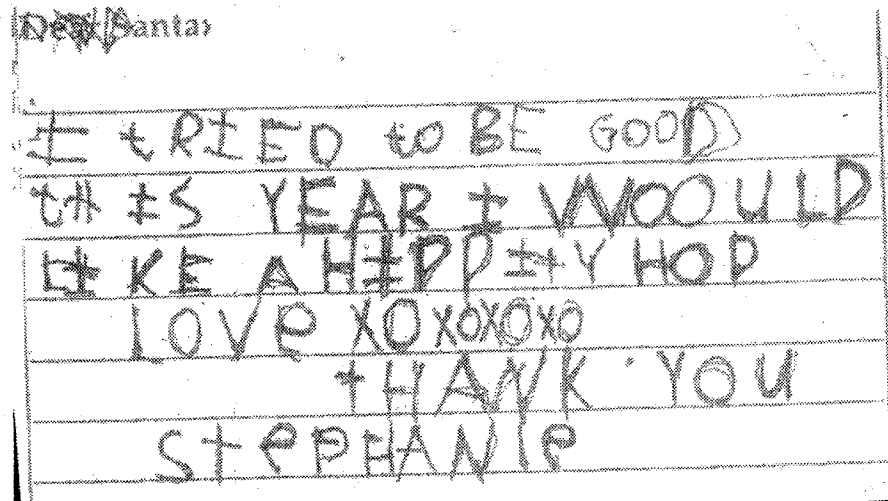 Dear Santa,
I tRIED to BE GOOD
tHIS YEAR I WOOULD
LIKE A HIPPItY HOP
LOVe XOXOXOXO
tHANK YOU
StePHANIe